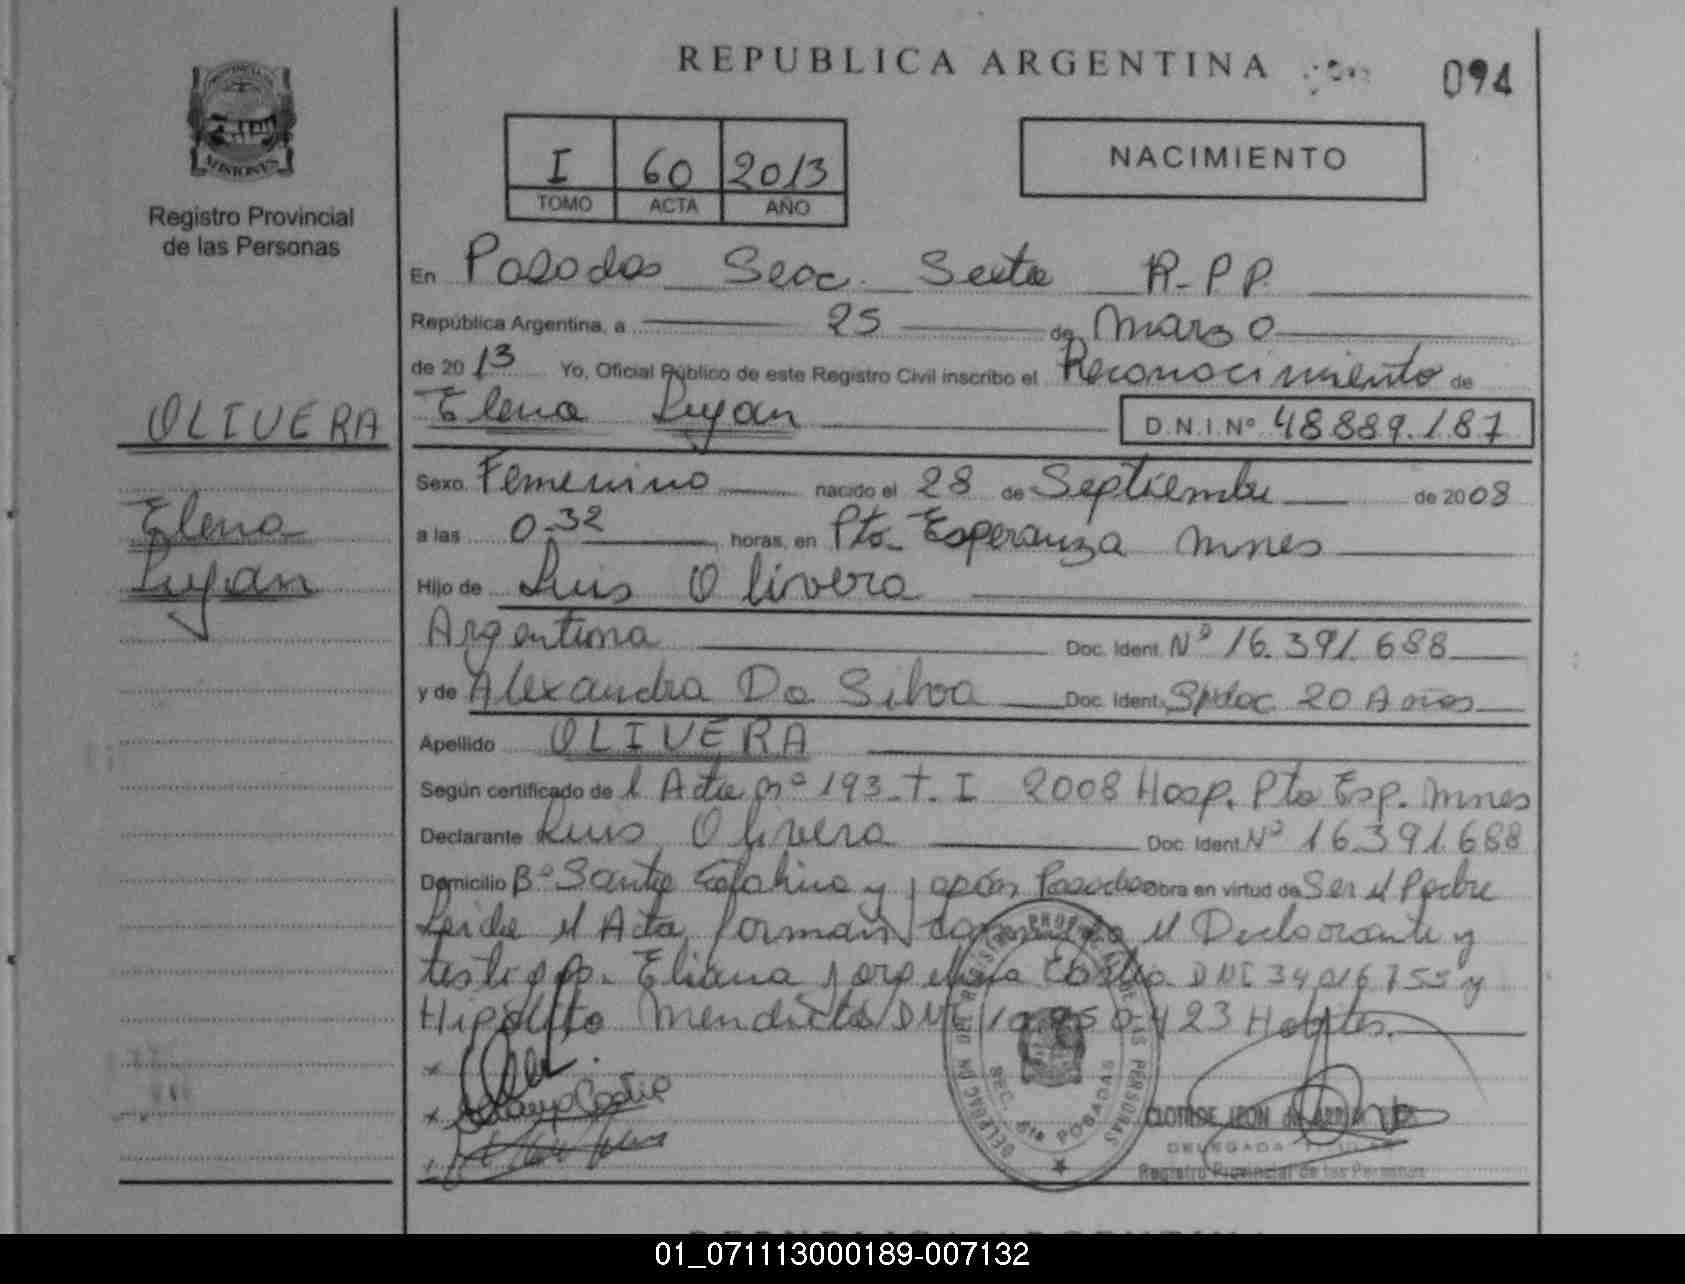 REPUBLICA ARGENTINA
094
MISIONES
Registro Provincial
de las Personas
I 60 2013
TOMO ACTA AÑO
NACIMIENTO
En Posadas Secc. Sexta R.P.P.
República Argentina, a 25 de Marzo
de 2013 Yo, Oficial Público de este Registro Civil inscribo el Reconocimiento de
OLIVERA
Elena Luján D.N.I.Nº 48889.187
Sexo Femenino nacido el 28 de Septiembre de 2008
Elena
a las 0.32 horas, en Pto. Esperanza Mnes
Luján
Hijo de Luis Olivera
Argentina Doc. Ident. Nº 16.391.688
y de Alexandra Da Silva Doc. Ident. S/doc 20 Años
Apellido OLIVERA
Según certificado de l Acta nº 193 T. I 2008 Hosp. Pto Esp. Mnes
Declarante Luis Olivera Doc. Ident Nº 16.391.688
Domicilio Bº Santa Catalina y Japón Posadas obra en virtud de Ser el Padre
Leída el Acta, forman el Declarante y
testigos. Eliana DNI 34016755 y
Hipólito DNI 423 Hables.
DELEGACION DEL REGISTRO PROVINCIAL DE LAS PERSONAS
SEC. 6ta POSADAS
DELEGADA TITULAR
Registro Provincial de las Personas
REPUBLICA ARGENTINA
01_071113000189-007132